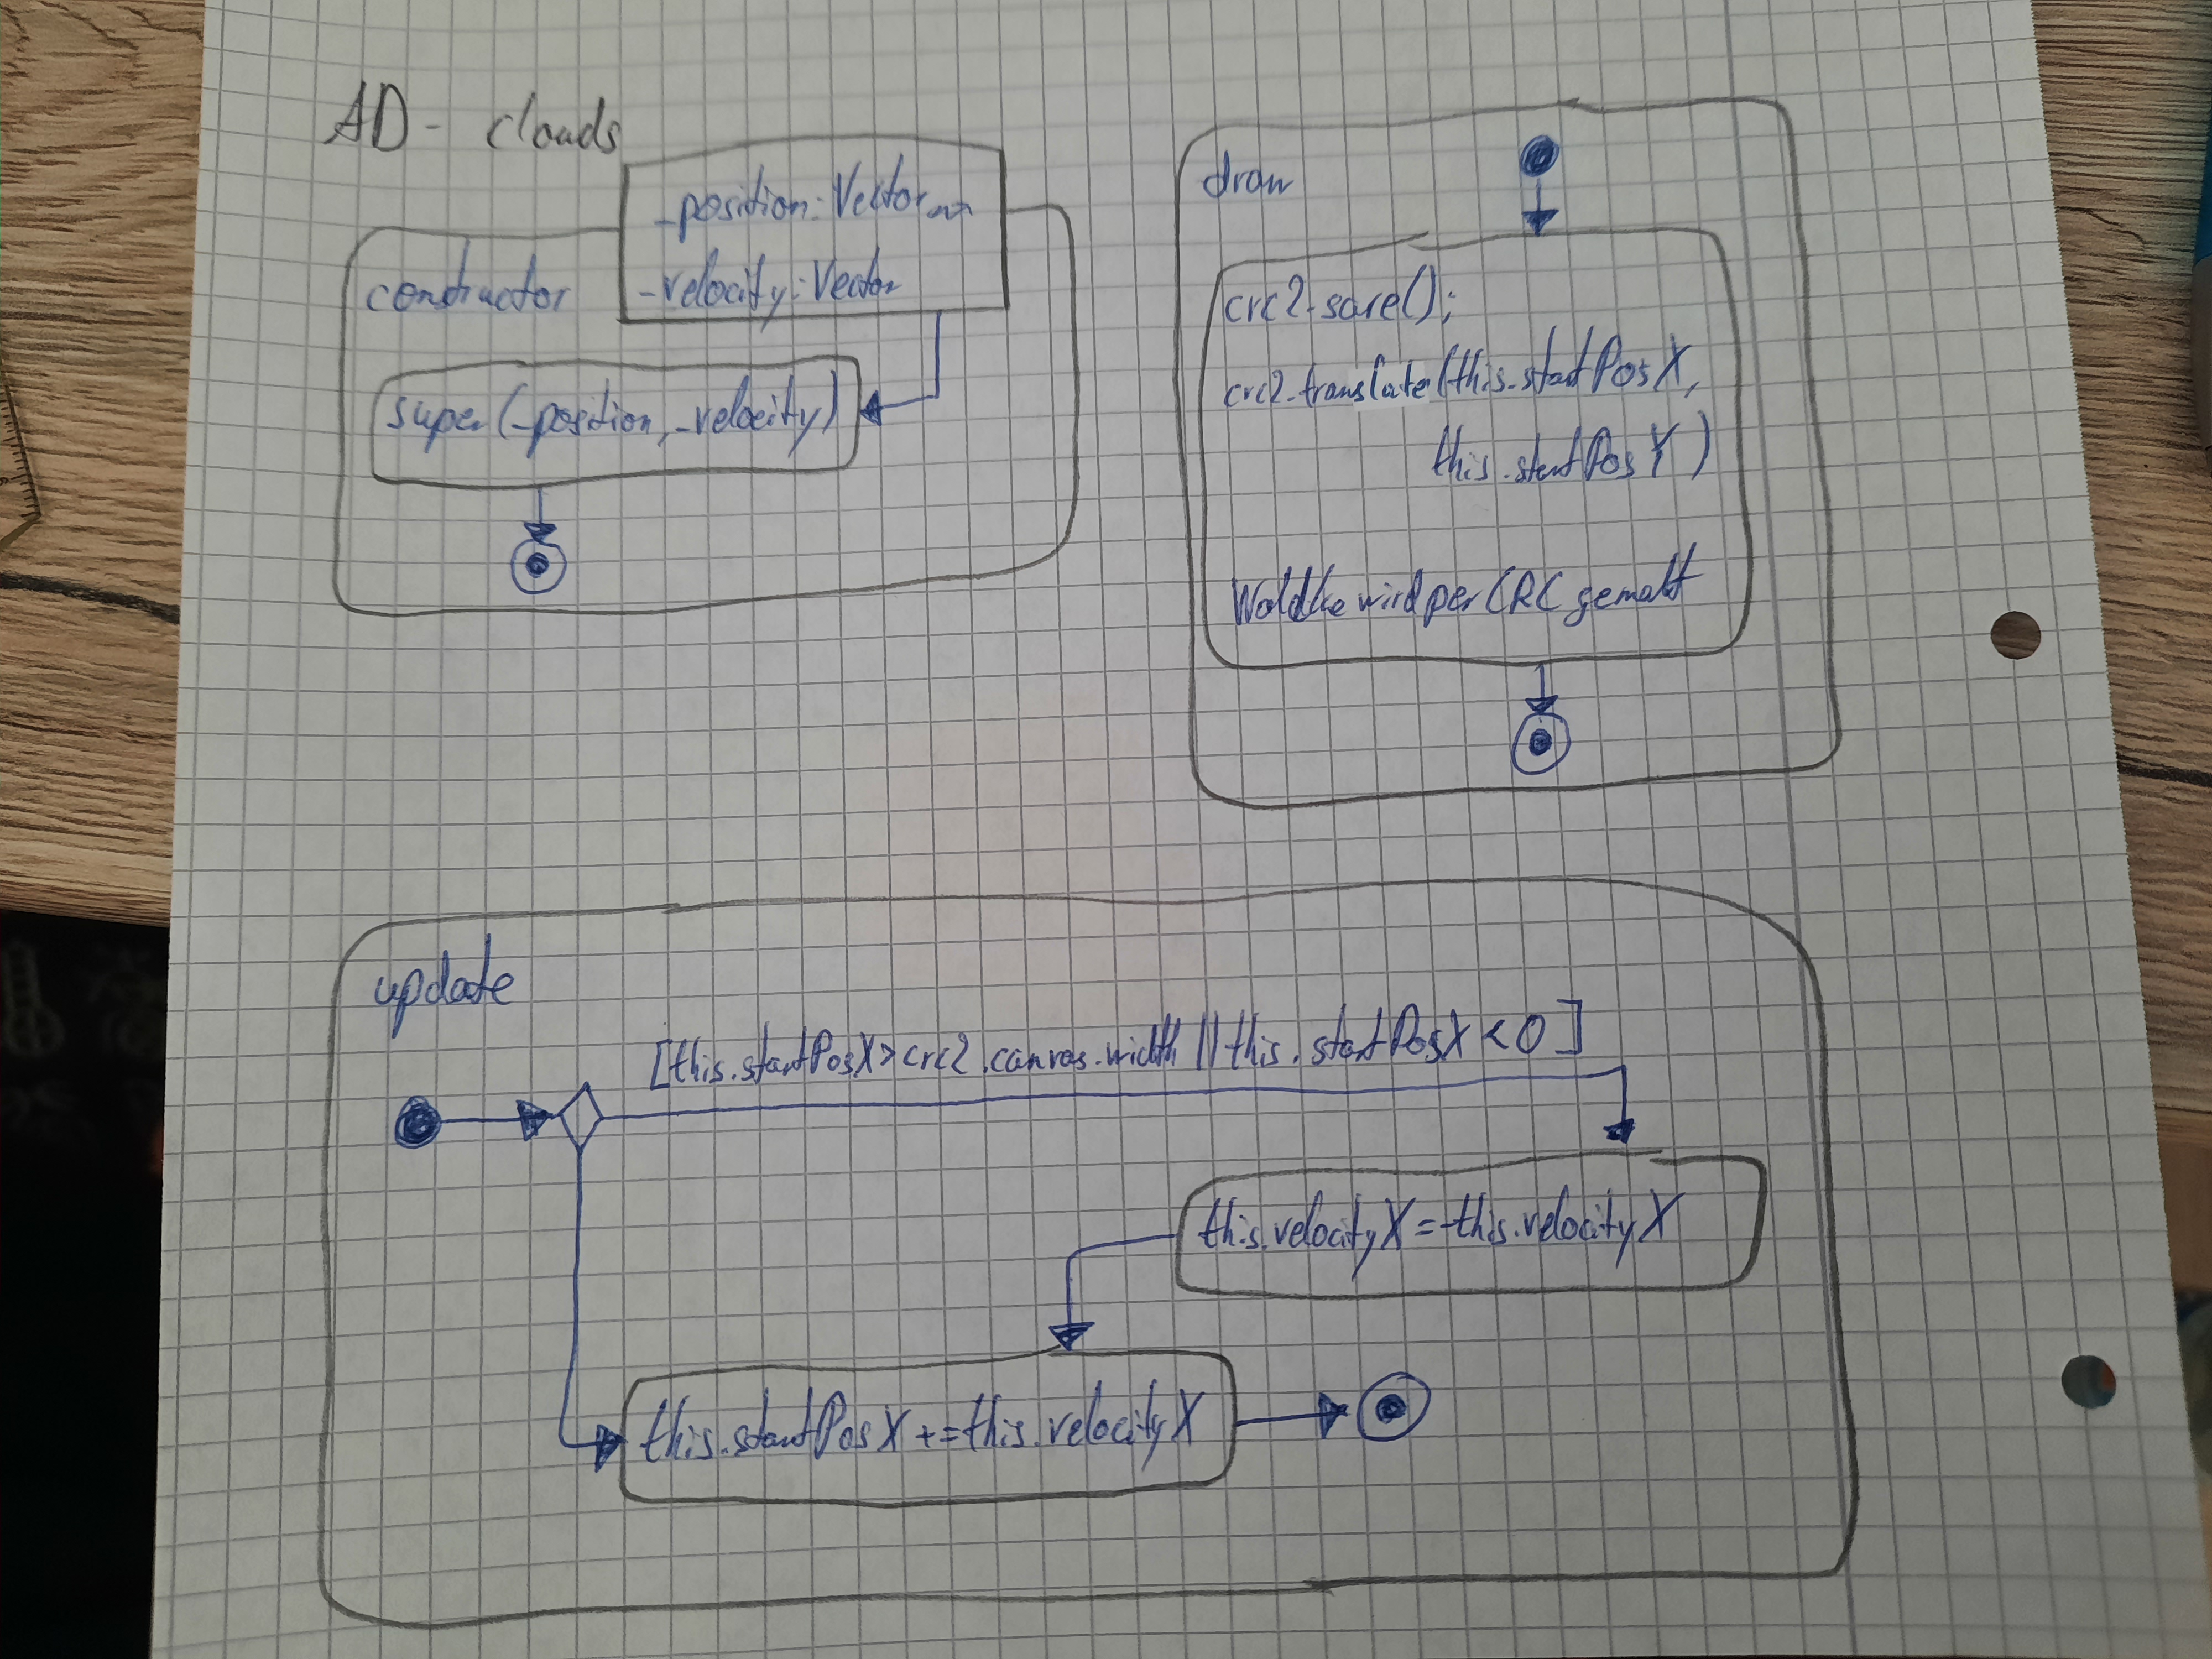 AD - clouds
constructor
_position: Vector
_velocity: Vector
super(_position, _velocity)
draw
crc2.save();
crc2.translate(this.startPosX,
this.startPosY)
Wolke wird per CRC gemalt
update
[this.startPosX > crc2.canvas.width || this.startPosX < 0]
this.velocityX = -this.velocityX
this.startPosX += this.velocityX